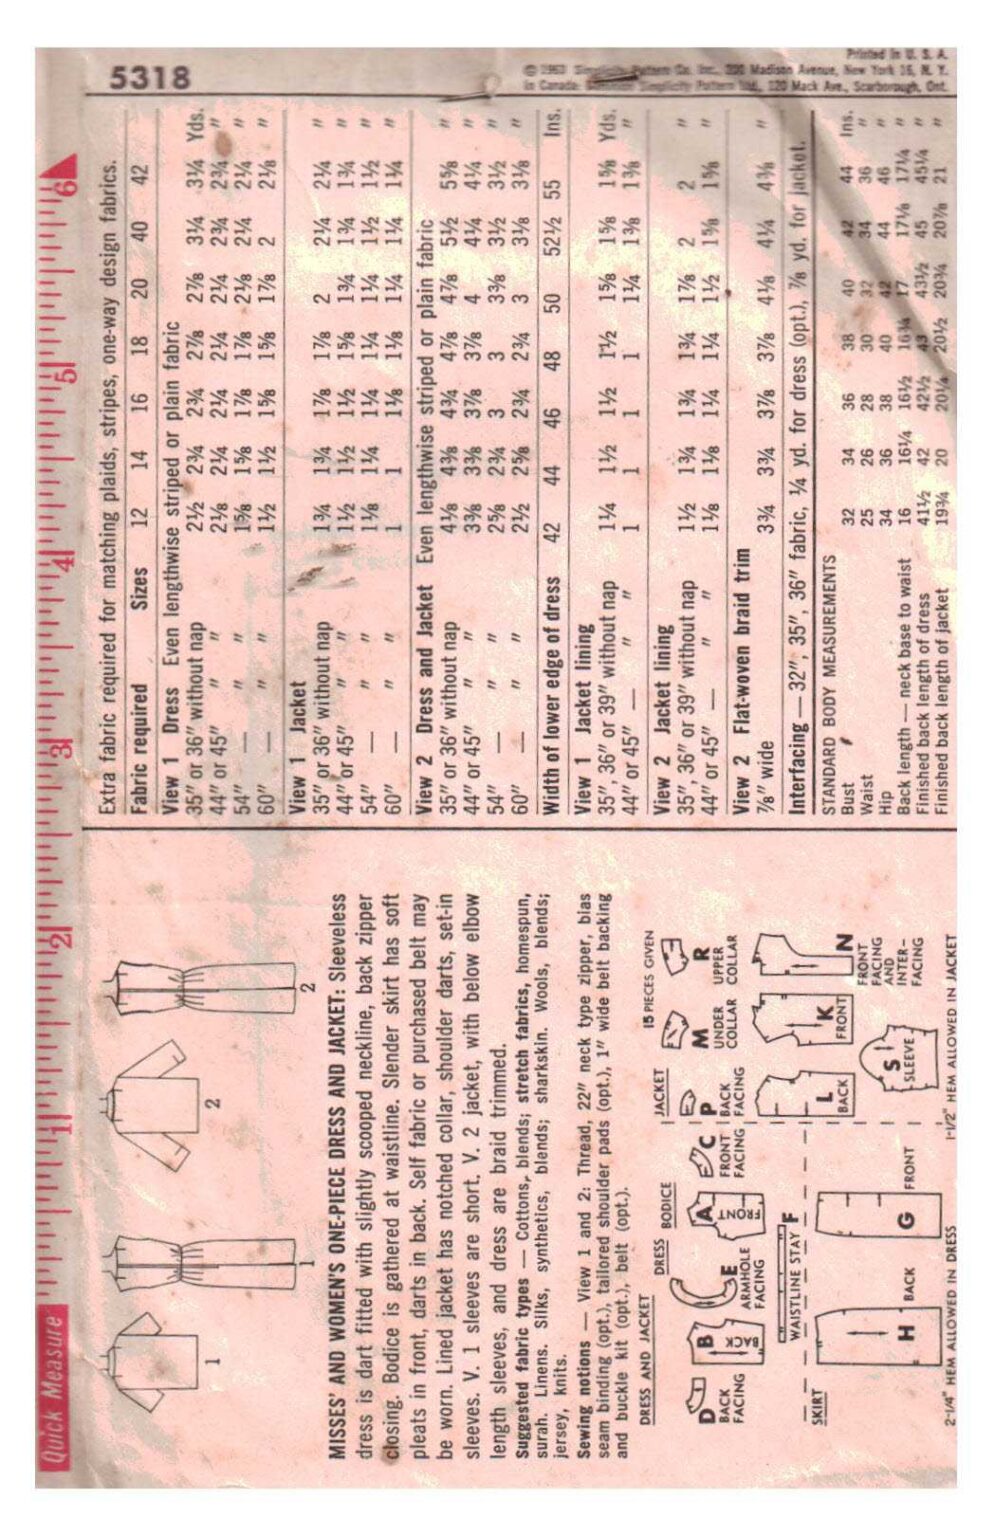 Quick Measure 1 2 3 4 5 6
1
1
2
2
MISSES' AND WOMEN'S ONE-PIECE DRESS AND JACKET: Sleeveless
dress is dart fitted with slightly scooped neckline, back zipper
closing. Bodice is gathered at waistline. Slender skirt has soft
pleats in front, darts in back. Self fabric or purchased belt may
be worn. Lined jacket has notched collar, shoulder darts, set-in
sleeves. V. 1 sleeves are short. V. 2 jacket, with below elbow
length sleeves, and dress are braid trimmed.
Suggested fabric types — Cottons, blends; stretch fabrics, homespun,
surah. Linens. Silks, synthetics, blends; sharkskin. Wools, blends;
jersey, knits.
Sewing notions — View 1 and 2: Thread, 22" neck type zipper, bias
seam binding (opt.), tailored shoulder pads (opt.), 1" wide belt backing
and buckle kit (opt.), belt (opt.).
15 PIECES GIVEN
DRESS AND JACKET
DRESS
BODICE
JACKET
D
BACK
FACING
B
BACK
E
ARMHOLE
FACING
A
FRONT
C
FRONT
FACING
P
BACK
FACING
M
UNDER
COLLAR
R
UPPER
COLLAR
WAISTLINE STAY F
L
BACK
K
FRONT
N
FRONT
FACING
AND
INTER-
FACING
S
SLEEVE
SKIRT
H
BACK
G
FRONT
2-1/4" HEM ALLOWED IN DRESS
1-1/2" HEM ALLOWED IN JACKET
5318
© 1963 Simplicity Pattern Co. Inc., 200 Madison Avenue, New York 16, N. Y.
Printed in U. S. A.
In Canada: Dominion Simplicity Pattern Ltd., 120 Mack Ave., Scarborough, Ont.
Extra fabric required for matching plaids, stripes, one-way design fabrics.
Fabric required Sizes 12 14 16 18 20 40 42
View 1 Dress Even lengthwise striped or plain fabric
35" or 36" without nap 2½ 2¾ 2¾ 2⅞ 2⅞ 3¼ 3¼ Yds.
44" or 45" " " 2⅛ 2¼ 2¼ 2¼ 2¼ 2¾ 2¾ "
54" — " " 1⅝ 1⅝ 1⅞ 1⅞ 2⅛ 2¼ 2¼ "
60" — " " 1½ 1½ 1⅝ 1⅝ 1⅞ 2 2⅛ "
View 1 Jacket
35" or 36" without nap 1¾ 1¾ 1⅞ 1⅞ 2 2¼ 2¼ "
44" or 45" " " 1½ 1½ 1½ 1⅝ 1¾ 1¾ 1¾ "
54" — " " 1⅛ 1¼ 1¼ 1¼ 1¼ 1½ 1½ "
60" — " " 1 1 1⅛ 1⅛ 1¼ 1¼ 1¼ "
View 2 Dress and Jacket Even lengthwise striped or plain fabric
35" or 36" without nap 4⅛ 4⅜ 4¾ 4⅞ 4⅞ 5½ 5⅝ "
44" or 45" " " 3⅜ 3⅜ 3⅞ 3⅞ 4 4¼ 4¼ "
54" — " " 2⅝ 2¾ 3 3 3⅜ 3½ 3½ "
60" — " " 2½ 2⅝ 2¾ 2¾ 3 3⅛ 3⅛ "
Width of lower edge of dress 42 44 46 48 50 52½ 55 Ins.
View 1 Jacket lining
35", 36" or 39" without nap 1¼ 1½ 1½ 1½ 1⅝ 1⅝ 1⅝ Yds.
44" or 45" — " " 1 1 1 1 1¼ 1⅜ 1⅜ "
View 2 Jacket lining
35", 36" or 39" without nap 1½ 1¾ 1¾ 1¾ 1⅞ 2 2 "
44" or 45" — " " 1⅛ 1⅛ 1¼ 1¼ 1½ 1⅝ 1⅝ "
View 2 Flat-woven braid trim
⅞" wide 3¾ 3¾ 3⅞ 3⅞ 4⅛ 4¼ 4⅜ "
Interfacing — 32", 35", 36" fabric, ¼ yd. for dress (opt.), ⅞ yd. for jacket.
STANDARD BODY MEASUREMENTS
Bust 32 34 36 38 40 42 44 Ins.
Waist 25 26 28 30 32 34 36 "
Hip 34 36 38 40 42 44 46 "
Back length — neck base to waist 16 16¼ 16½ 16¾ 17 17⅛ 17¼ "
Finished back length of dress 41½ 42 42½ 43 43½ 45 45¼ "
Finished back length of jacket 19¾ 20 20¼ 20½ 20¾ 20⅞ 21 "